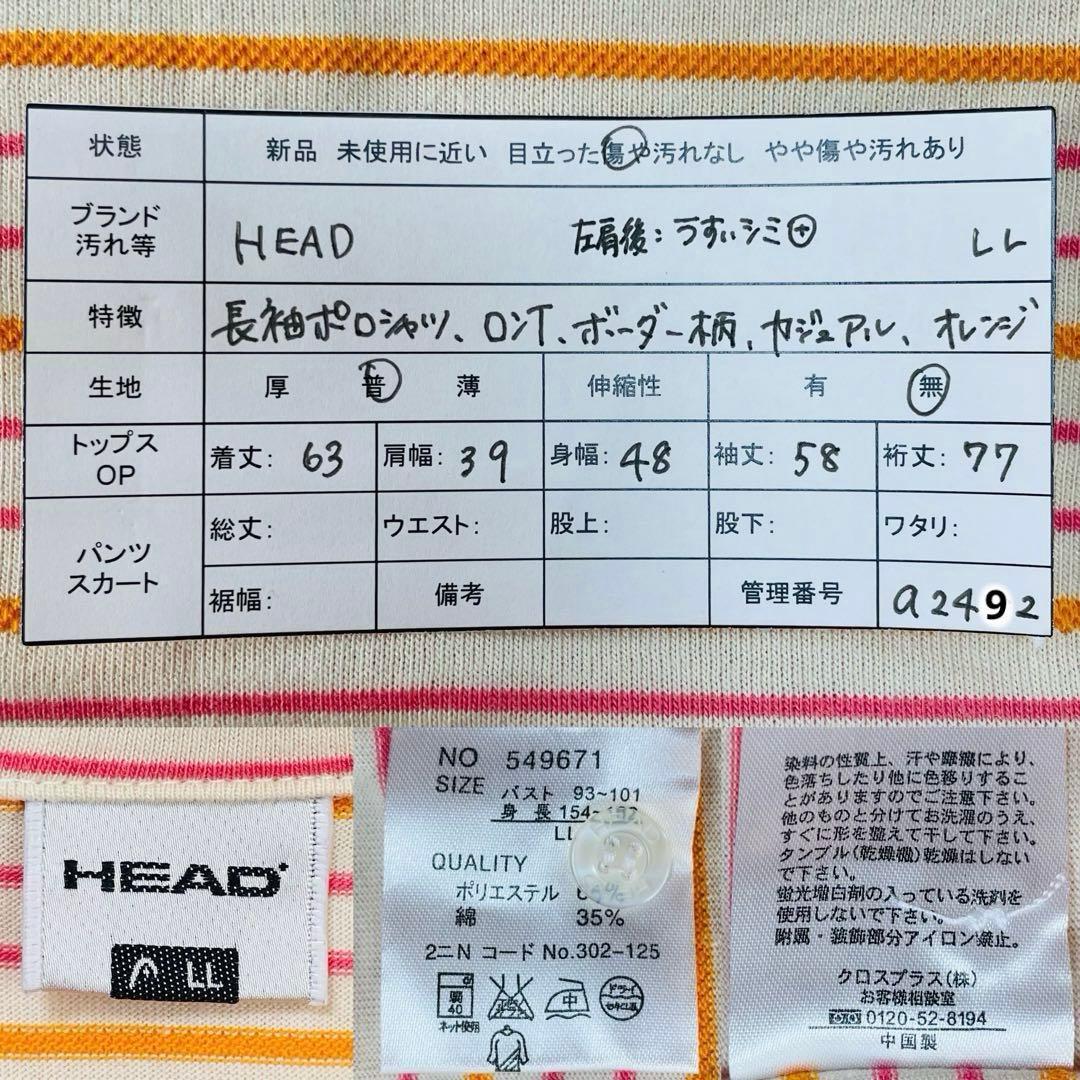 状態 新品 未使用に近い 目立った傷や汚れなし やや傷や汚れあり
ブランド
汚れ等 HEAD 左肩後:うすいシミ LL
特徴 長袖ポロシャツ、ロンT、ボーダー柄、カジュアル、オレンジ
生地 厚 普 薄 伸縮性 有 無
トップス
OP 着丈: 63 肩幅: 39 身幅: 48 袖丈: 58 裄丈: 77
パンツ
スカート 総丈: ウエスト: 股上: 股下: ワタリ:
裾幅: 備考 管理番号 a2492
HEAD
LL
NO 549671
SIZE バスト 93~101
身 長 154~162
LL
QUALITY
ポリエステル
綿 35%
2ニN コード No.302-125
40
ネット使用
中
ドライ
セキユ系
染料の性質上、汗や摩擦により、
色落ちしたり他に色移りするこ
とがありますのでご注意下さい。
他のものと分けてお洗濯のうえ、
すぐに形を整えて干して下さい。
タンブル(乾燥機)乾燥はしない
で下さい。
蛍光増白剤の入っている洗剤を
使用しないで下さい。
附属・装飾部分アイロン禁止。
クロスプラス(株)
お客様相談室
0120-52-8194
中国製